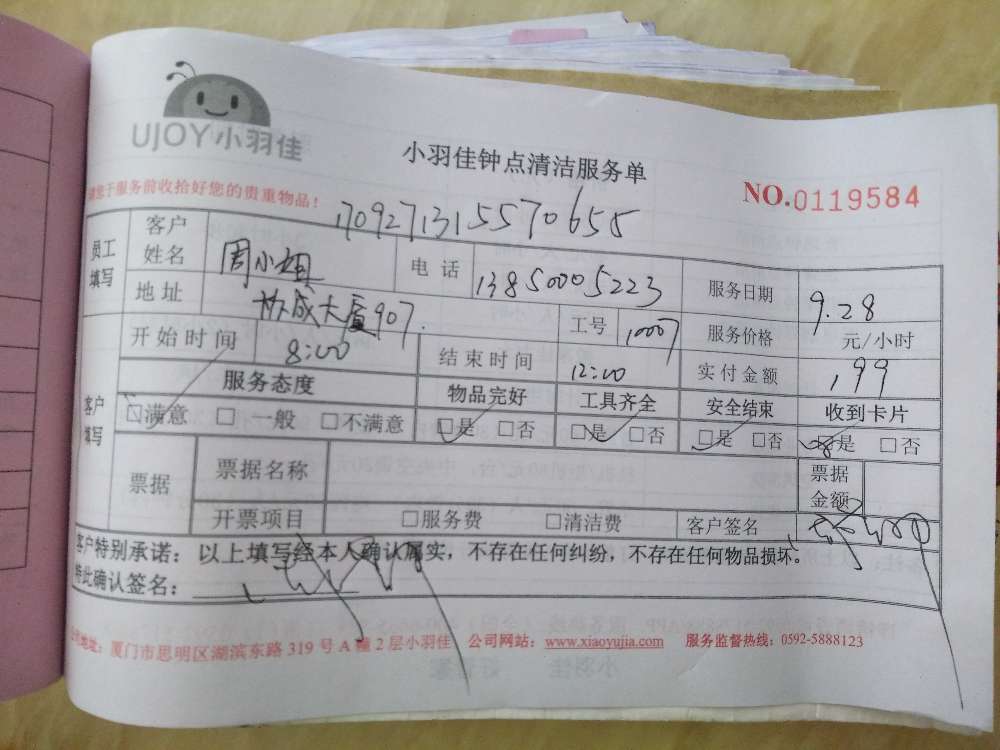 UJOY小羽佳
小羽佳钟点清洁服务单
请您于服务前收拾好您的贵重物品！
NO.0119584
1709271315570655
员工填写 客户姓名 周小姐 电话 13850005223 服务日期 9.28
地址 协成大厦907. 工号 10007 服务价格 元/小时
开始时间 8:00 结束时间 12:00 实付金额 199
客户填写 服务态度 物品完好 工具齐全 安全结束 收到卡片
☑满意 □一般 □不满意 ☑是 □否 ☑是 □否 ☑是 □否 ☑是 □否
票据 票据名称 票据金额
开票项目 □服务费 □清洁费 客户签名
客户特别承诺：以上填写经本人确认属实，不存在任何纠纷，不存在任何物品损坏。
特此确认签名：
公司地址：厦门市思明区湖滨东路319号A幢2层小羽佳 公司网站：www.xiaoyujia.com 服务监督热线：0592-5888123